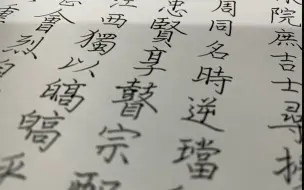 院庶吉士尋
周同名時逆璫
忠賢享瞽宗
西獨以皜皜
會烈